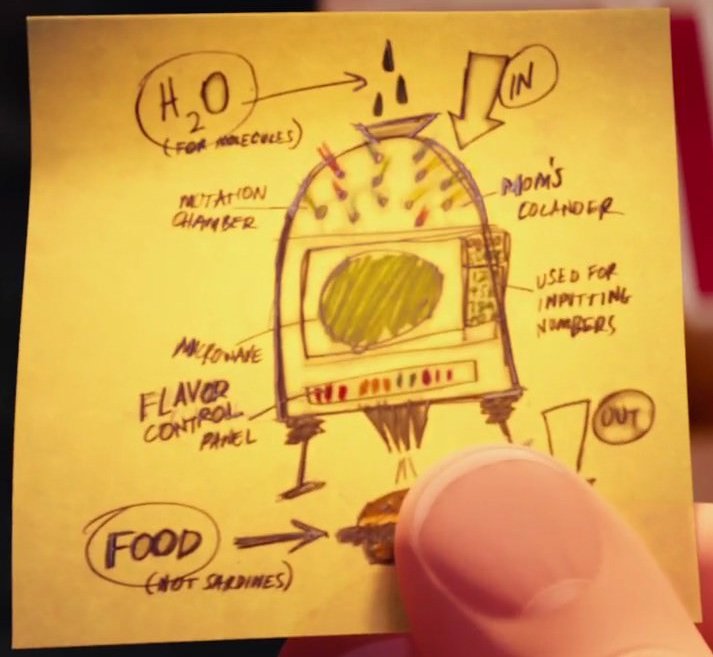 H2O
(FOR MOLECULES)
IN
MUTATION
CHAMBER
MOM'S
COLANDER
USED FOR
INPUTTING
NUMBERS
MICROWAVE
FLAVOR
CONTROL
PANEL
OUT
FOOD
(NOT SARDINES)